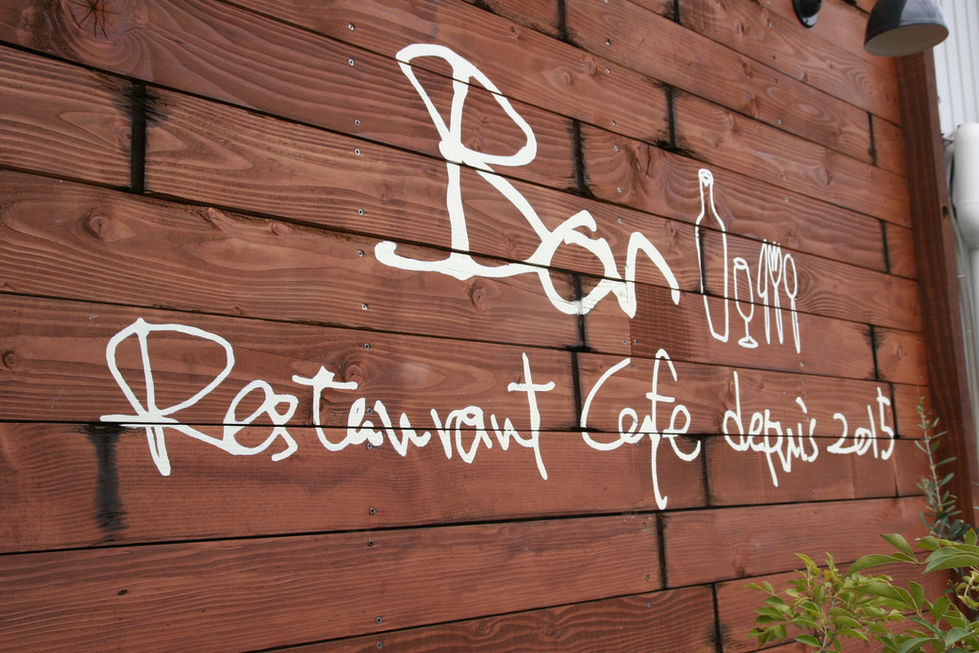 Ron
Restaurant Cafe depuis 2015